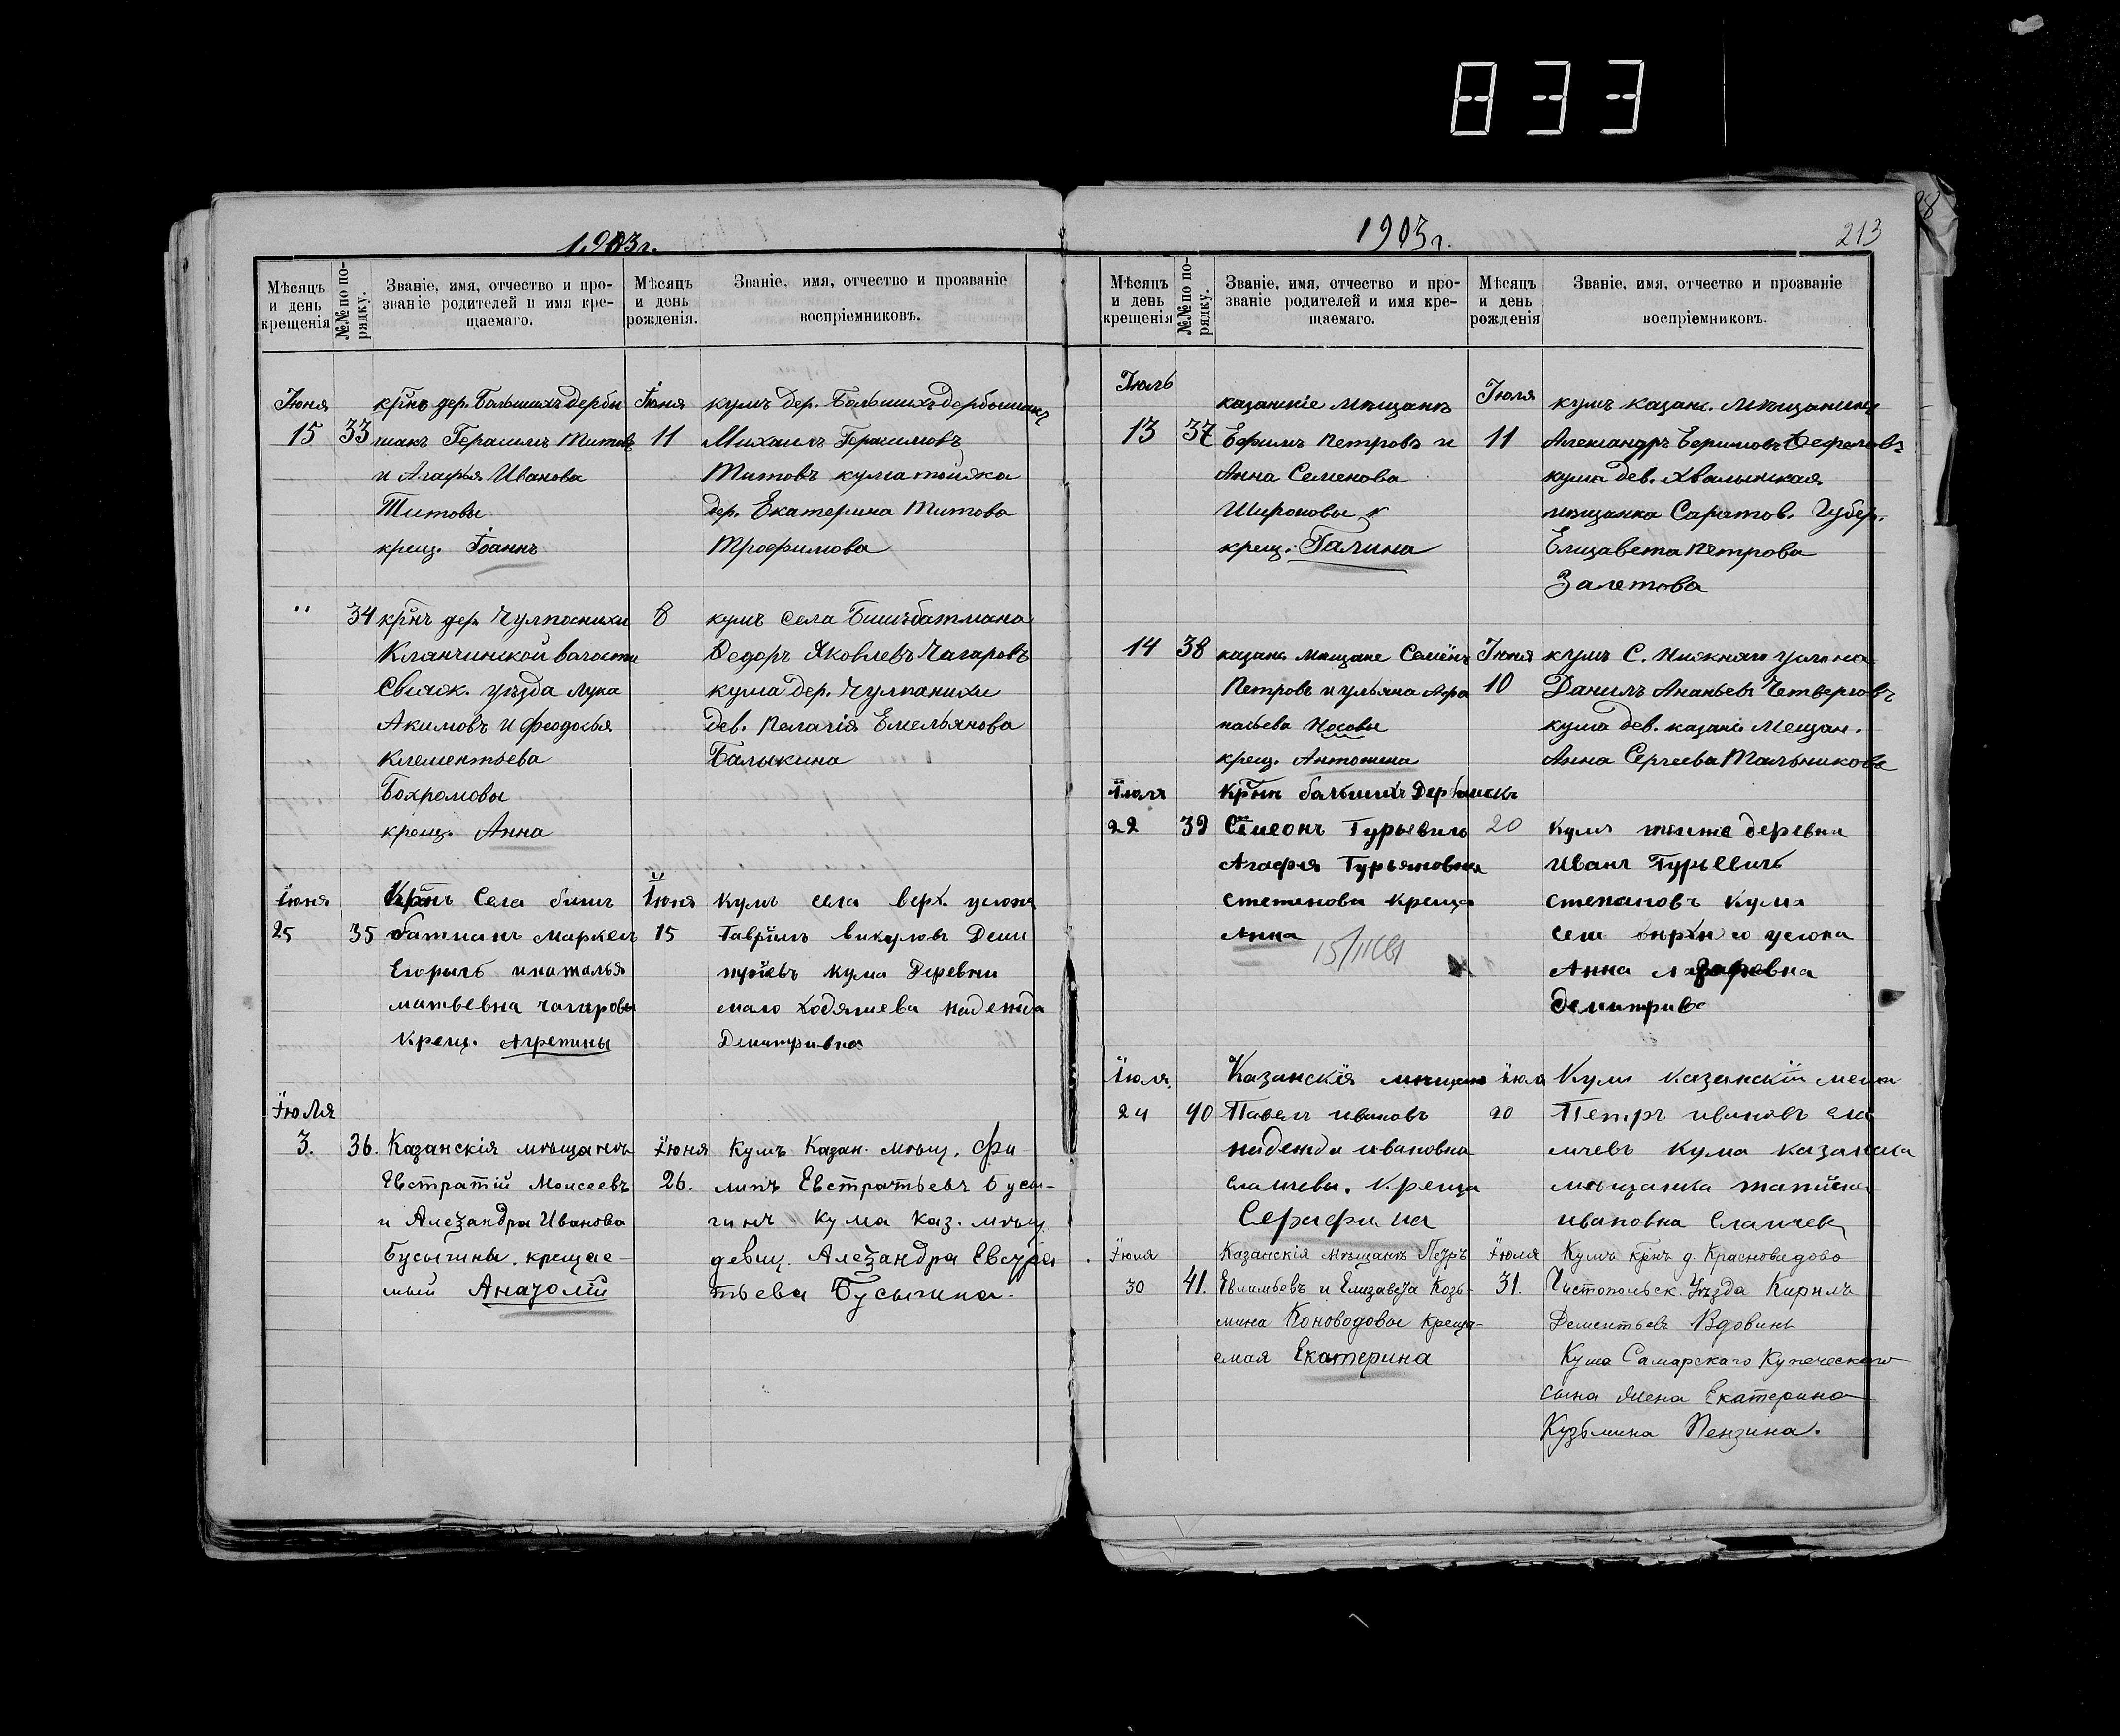 833
1903г.
Мѣсяцъ и день крещенія
№№ по порядку.
Званіе, имя, отчество и про-
званіе родителей и имя кре-
щаемаго.
Мѣсяцъ и день рожденія.
Званіе, имя, отчество и прозваніе
воспріемниковъ.
Іюня
15 33
крнъ дер. Большихъ Дербы
шакъ Герасимъ Титовъ
и Агафья Иванова
Титовы
крещ. Іоаннъ
Іюня
11
кумъ дер. Большихъ Дербышакъ
Михаилъ Герасимовъ
Титовъ кума тойжа
дер. Екатерина Титова
Трофимова
" 34
крнъ дер. Чулпонихи
Клянчинской волости
Свияж. уѣзда Лука
Акимовъ и Феодосья
Клементьева
Бохромовы
крещ. Анна
8
кумъ села Бишбатмана
Федоръ Яковлевъ Чагаровъ
кума дер. Чулпанихи
дев. Пелагія Емельянова
Балыкина
Іюня
25 35
Крнъ Села биш
батманъ Маркелъ
Егорычъ инаталья
матвевна чагаровы
Крещ. Агрепины
Іюня
15
кумъ села верх. услона
Гаврилъ викуловъ Деми
тріевъ кума Деревни
мало ходяшева надежда
Демитривна
Іюля
3. 36.
Казанскія мѣщанъ
Евстратій Моисеевъ
и Александра Иванова
Бусыгины. крещае-
мый Анатолій
Іюня
26.
Кумъ Казан. мѣщ. Фи
липъ Евстратьевъ Бусы-
гинъ кума Каз. мѣщ.
девиц. Александра Евстра
тьева Бусыгина.
1903г.
213
Мѣсяцъ и день крещенія
№№ по порядку.
Званіе, имя, отчество и про-
званіе родителей и имя кре-
щаемаго.
Мѣсяцъ и день рожденія
Званіе, имя, отчество и прозваніе
воспріемниковъ.
Іюль
13 37
казанскіе мѣщанъ
Ефимъ Петровъ и
Анна Семенова
Широковы
крещ. Галина
Іюля
11
кумъ казан. мѣщанинъ
Александръ Ефимовъ
кума дев. Хвалынская
мѣщанка Саратов. Губер.
Елизавета Петрова
Залетова
14 38
казан. мѣщане Семёнъ
Петровъ и ульяна Афа
насьева Носовы
крещ. Антонина
Іюня
10
кумъ С. Нижняго услона
Данилъ Ананьевъ Четверговъ
кума дев. казанс. мещан.
Анна Сергеева Мальникова
Іюля
22 39
Крнъ большихъ Дербышкъ
Симеонъ Гурьевичъ
Агафия Гурьяновна
степенова креща
Анна
20
кумъ тоиже деревни
Иванъ Гурьевичъ
степановъ кума
села верхняго услона
Анна Лазаревна
Демитрива
Іюля
24 40
Казанскія мещане
Павелъ ивановъ
надежда ивановна
елачева. креща
Серафима
Іюля
20
Кумъ казанскій мещан
Петръ ивановъ ела
мѣщанка татіяна
ивановна Елачева
Іюля
30 41.
Казанскія мѣщанъ Петръ
Евламьевъ и Елизавета Козь-
мина Коноводовы креща-
емая Екатерина
Іюля
31.
Кумъ крнъ д. Красновидово
Чистопольск. Уѣзда Кирилъ
Дементьевъ Вдовинъ
Кума Самарскаго Купеческаго
сына жена Екатерина
Кузьмина Пензина.